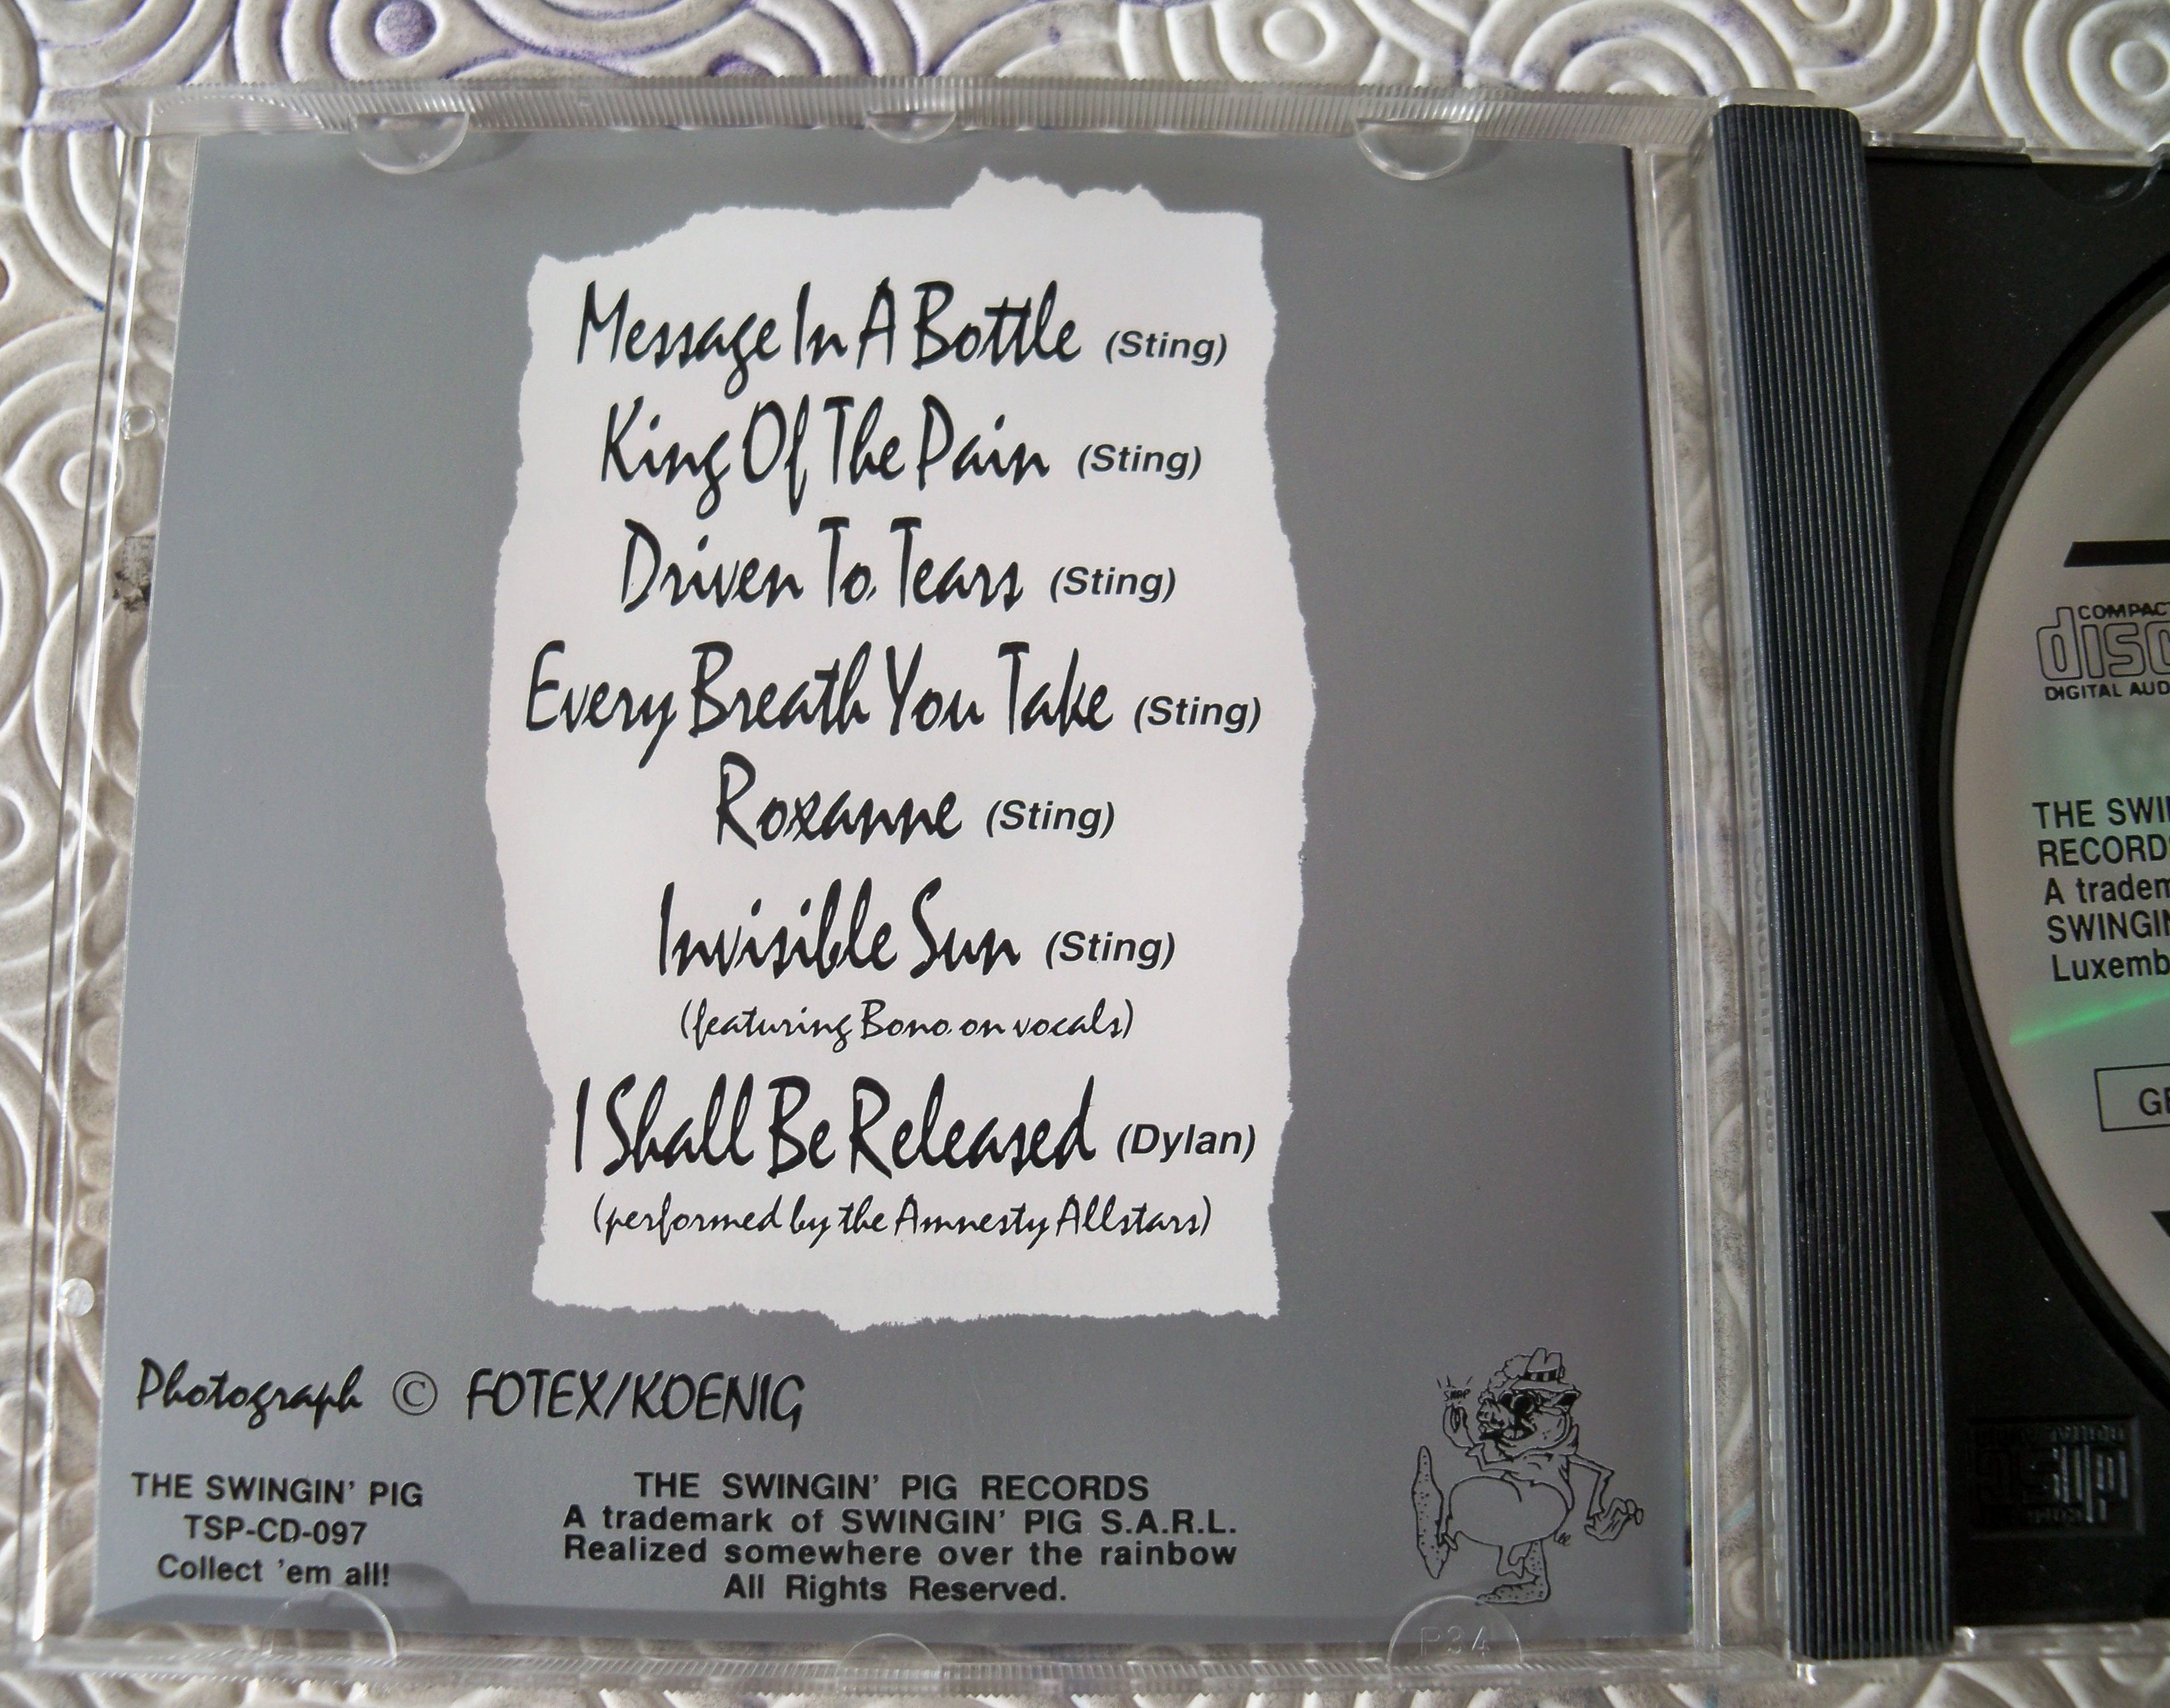 Message In A Bottle (Sting)
King Of The Pain (Sting)
Driven To Tears (Sting)
Every Breath You Take (Sting)
Roxanne (Sting)
Invisible Sun (Sting)
(featuring Bono on vocals)
I Shall Be Released (Dylan)
(performed by the Amnesty Allstars)
Photograph © FOTEX/KOENIG
THE SWINGIN' PIG
TSP-CD-097
Collect 'em all!
THE SWINGIN' PIG RECORDS
A trademark of SWINGIN' PIG S.A.R.L.
Realized somewhere over the rainbow
All Rights Reserved.
SNAP
P34
COMPACT
disc
DIGITAL AUD
THE SWI
RECORD
A tradem
SWINGIN
Luxemb